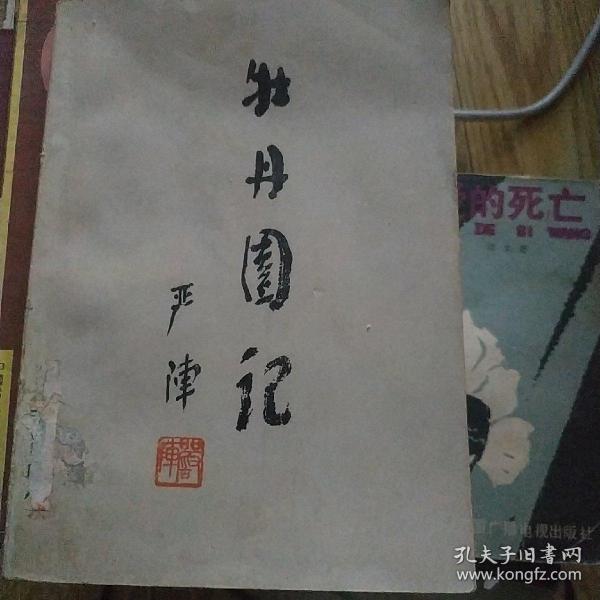 牡丹园记
严阵
的死亡
DE SI WANG
广播电视出版社
孔夫子旧书网
www.kongfz.com